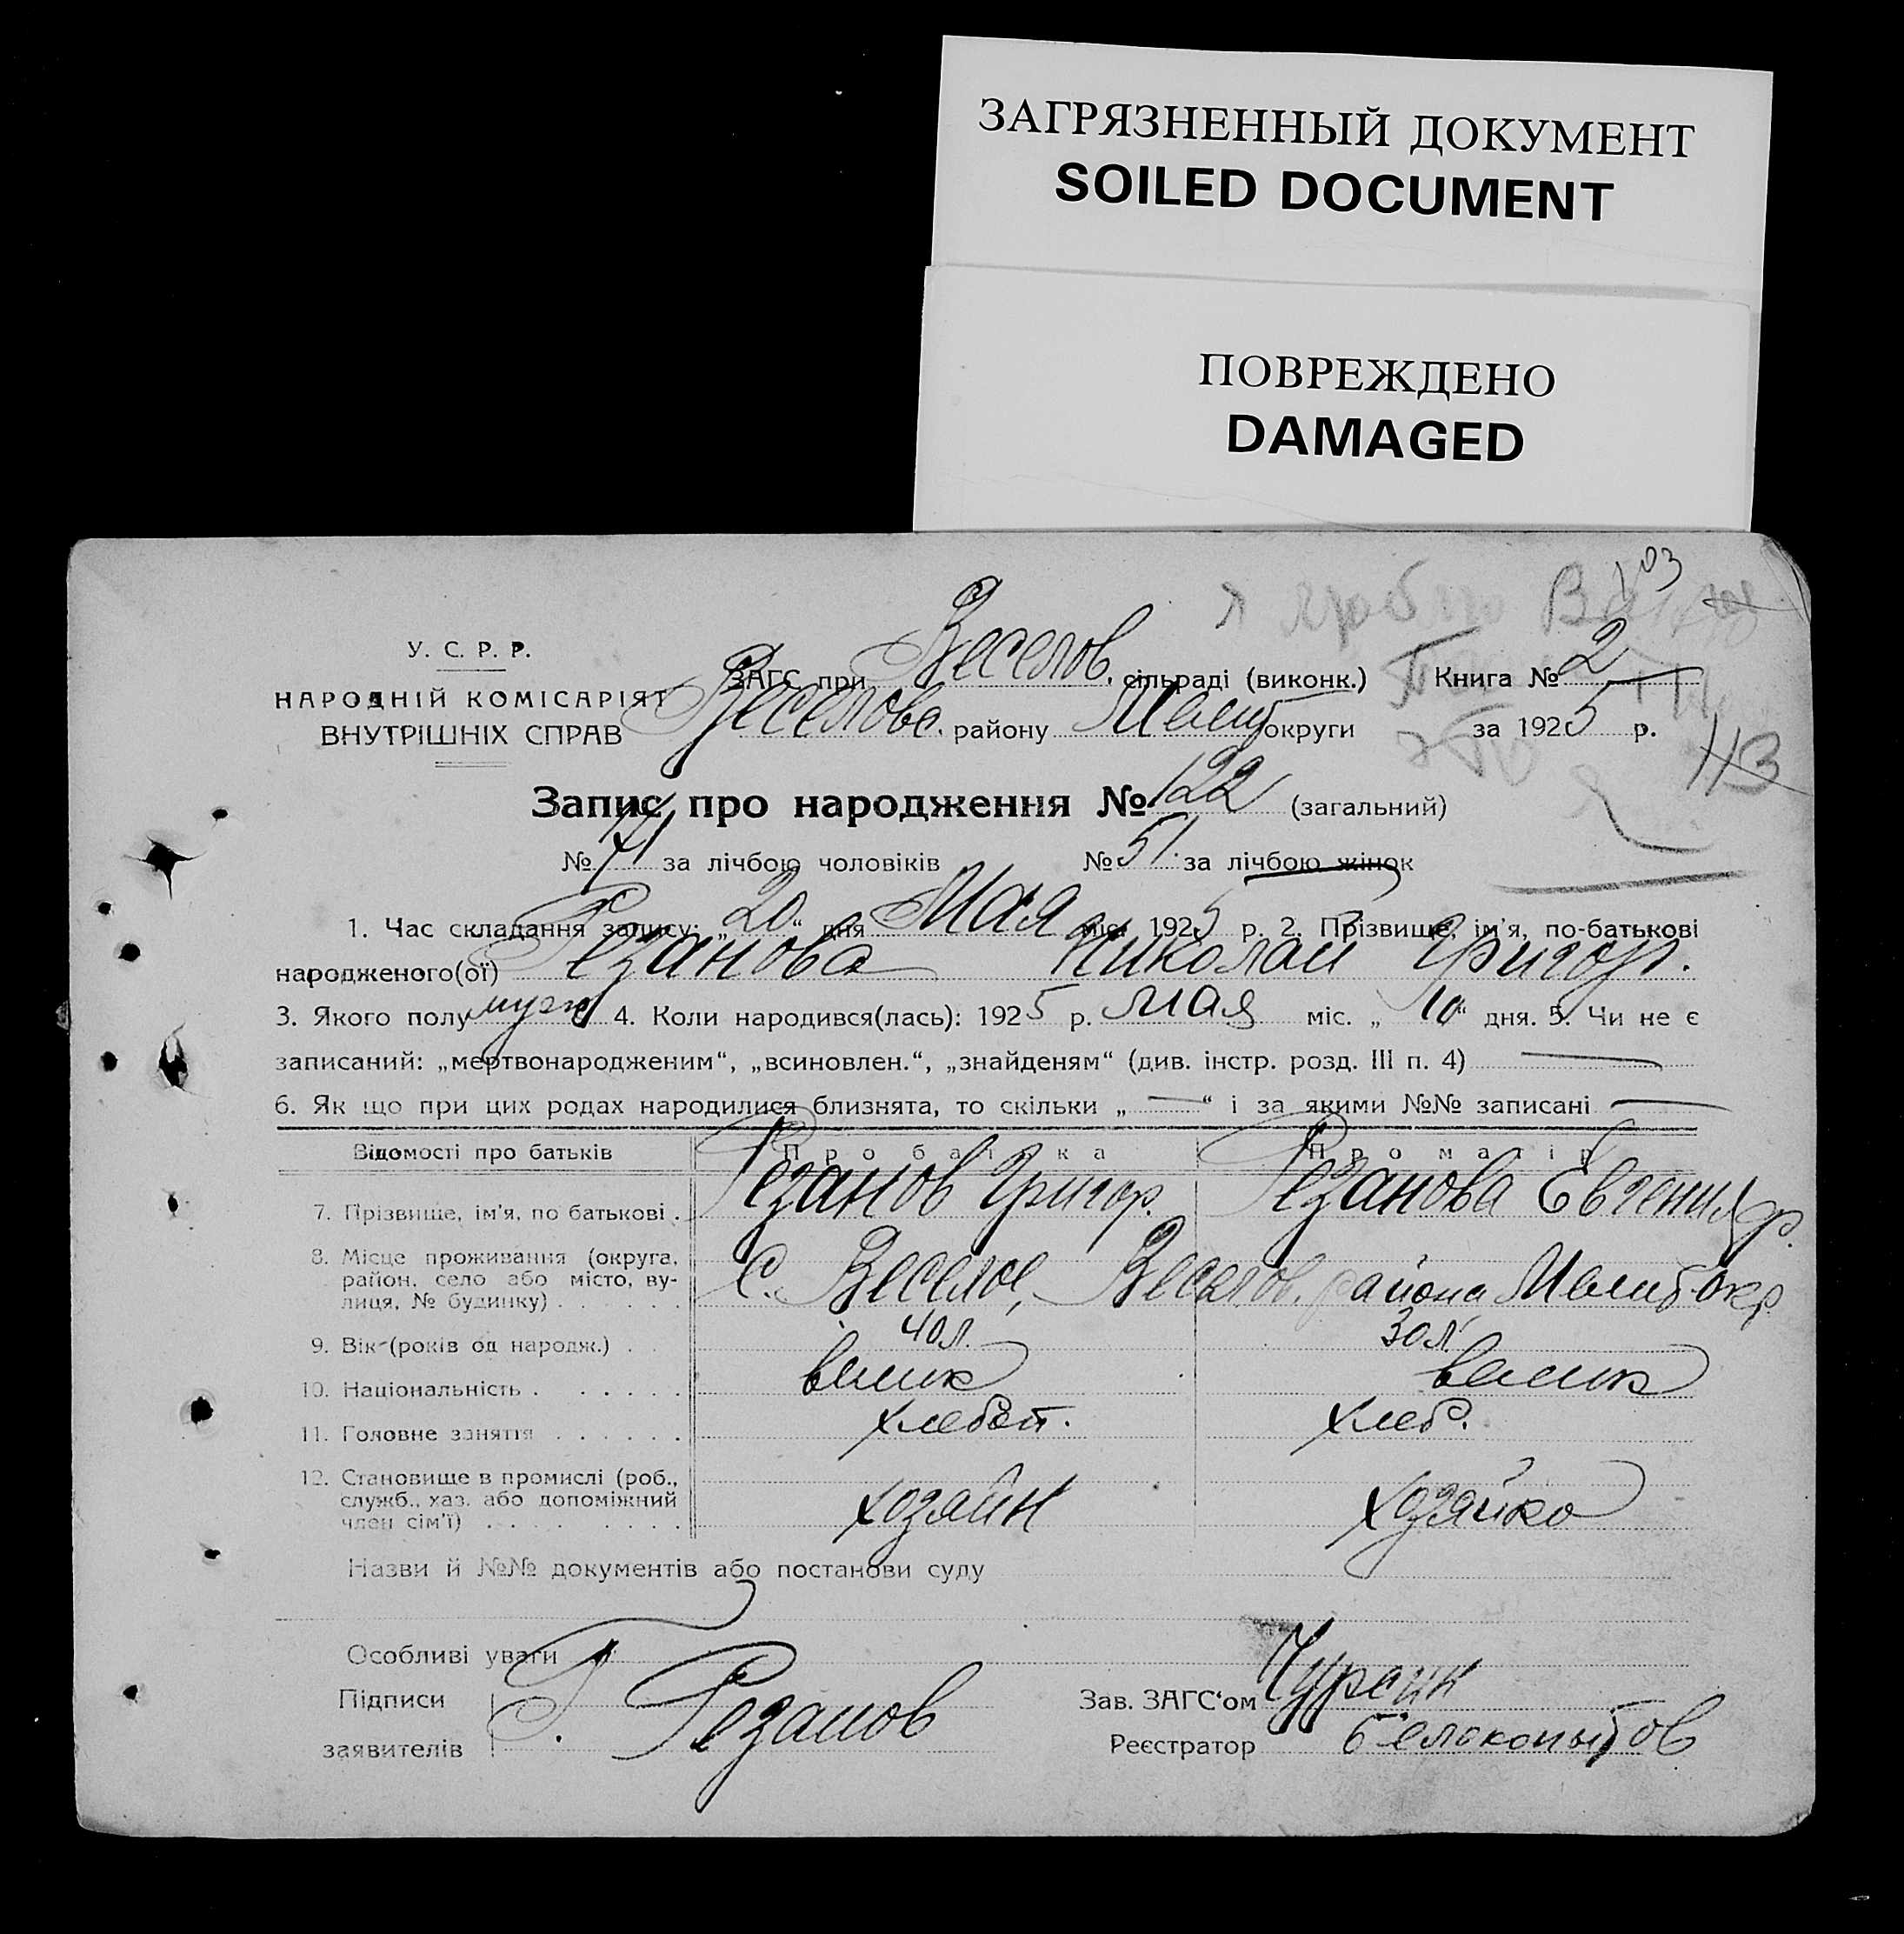 ЗАГРЯЗНЕННЫЙ ДОКУМЕНТ
SOILED DOCUMENT
ПОВРЕЖДЕНО
DAMAGED
103
У. С. Р. Р.
НАРОДНІЙ КОМІСАРІЯТ
ВНУТРІШНІХ СПРАВ
ЗАГС при Веселов. сільраді (виконк.) Книга № 2
Веселовс. району Мелит округи за 1925 р.
113
Запис про народження № 122 (загальний)
№ 71 за лічбою чоловіків № 51 за лічбою жінок
1. Час складання запису: „20“ дня Мая міс. 1925 р. 2. Прізвище, ім'я, по-батькові
народженого(ої) Резанова Николай Григор.
3. Якого полу муж 4. Коли народився(лась): 1925 р. мая міс. „10“ дня. 5. Чи не є
записаний: „мертвонародженим“, „всиновлен.“, „знайденям“ (див. інстр. розд. III п. 4) —
6. Як що при цих родах народилися близнята, то скільки „—“ і за якими №№ записані —
Відомості про батьків Про батька Про матір
7. Прізвище, ім'я, по батькові . Резанов Григор. Резанова Евгения
8. Місце проживання (округа,
район, село або місто, ву-
лиця, № будинку) . . . . . . С. Веселое, Веселов. района Мелит окр
9. Вік (років од народж.) . . 40 л. 30 л.
10. Національність . . . . . . велик велик
11. Головне заняття . . . . . . хлебоп. хлеб.
12. Становище в промислі (роб.,
служб., хаз. або допоміжний
член сім'ї) . . . . . . . . хозяин хозяйка
Назви й №№ документів або постанови суду
Особливі уваги
Підписи
заявителів Г. Резанов
Зав. ЗАГС'ом
Реєстратор Белокопытов